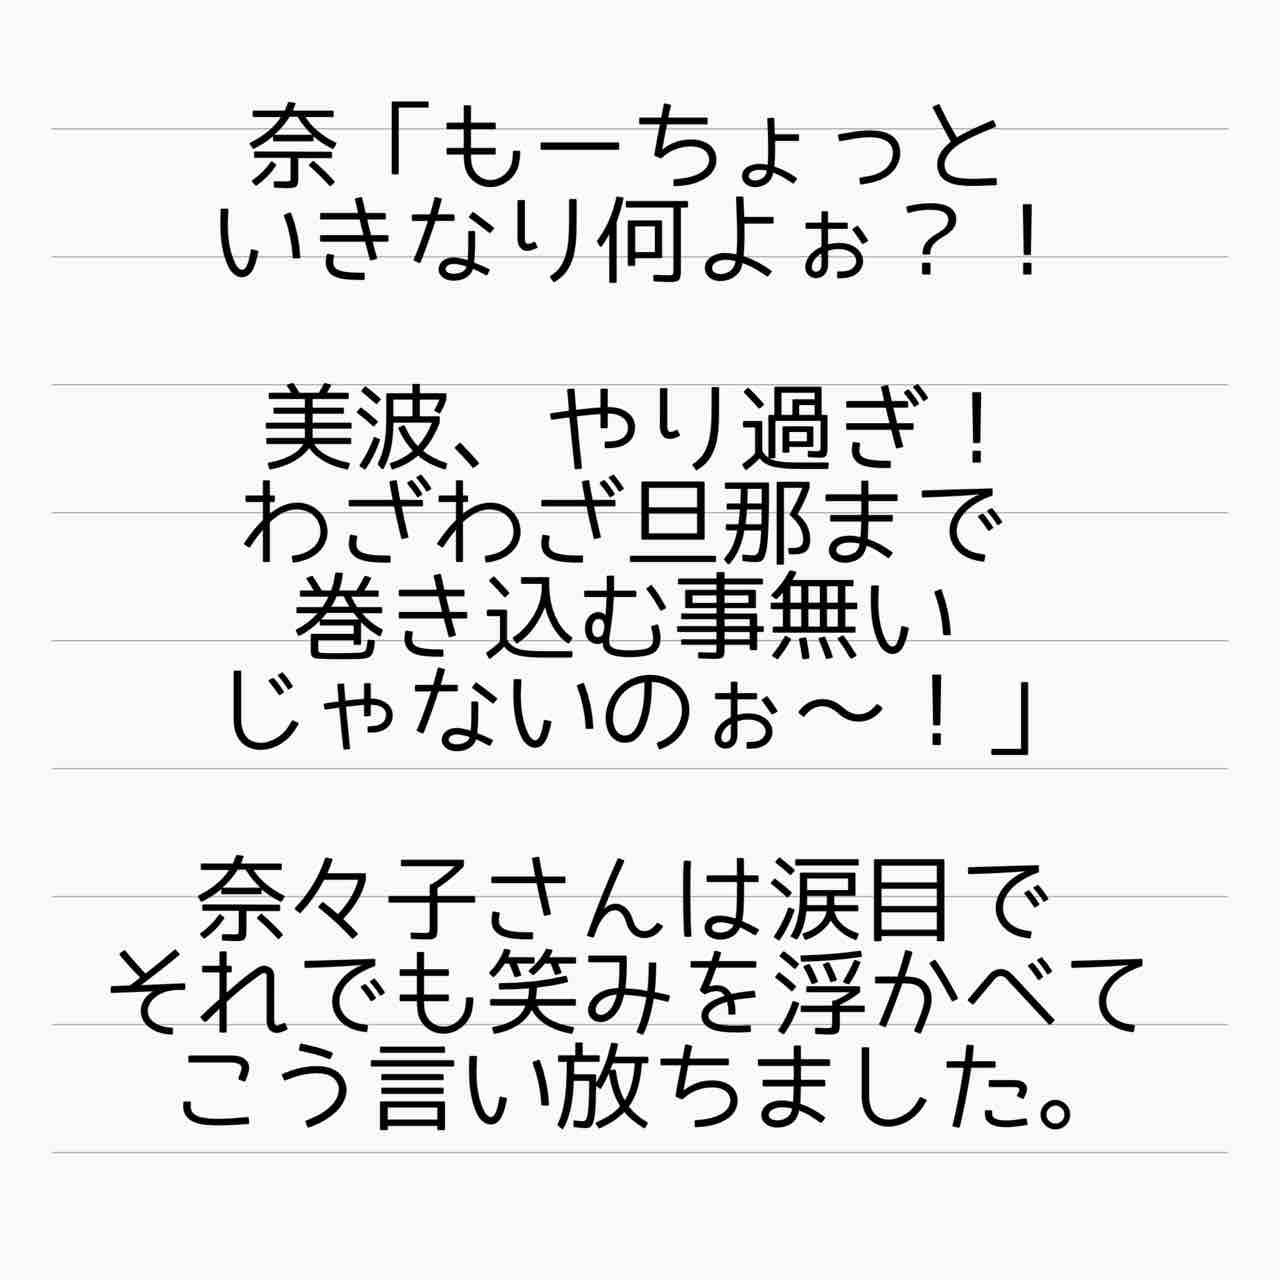 奈「もーちょっと
いきなり何よぉ？！
美波、やり過ぎ！
わざわざ旦那まで
巻き込む事無い
じゃないのぉ〜！」
奈々子さんは涙目で
それでも笑みを浮かべて
こう言い放ちました。